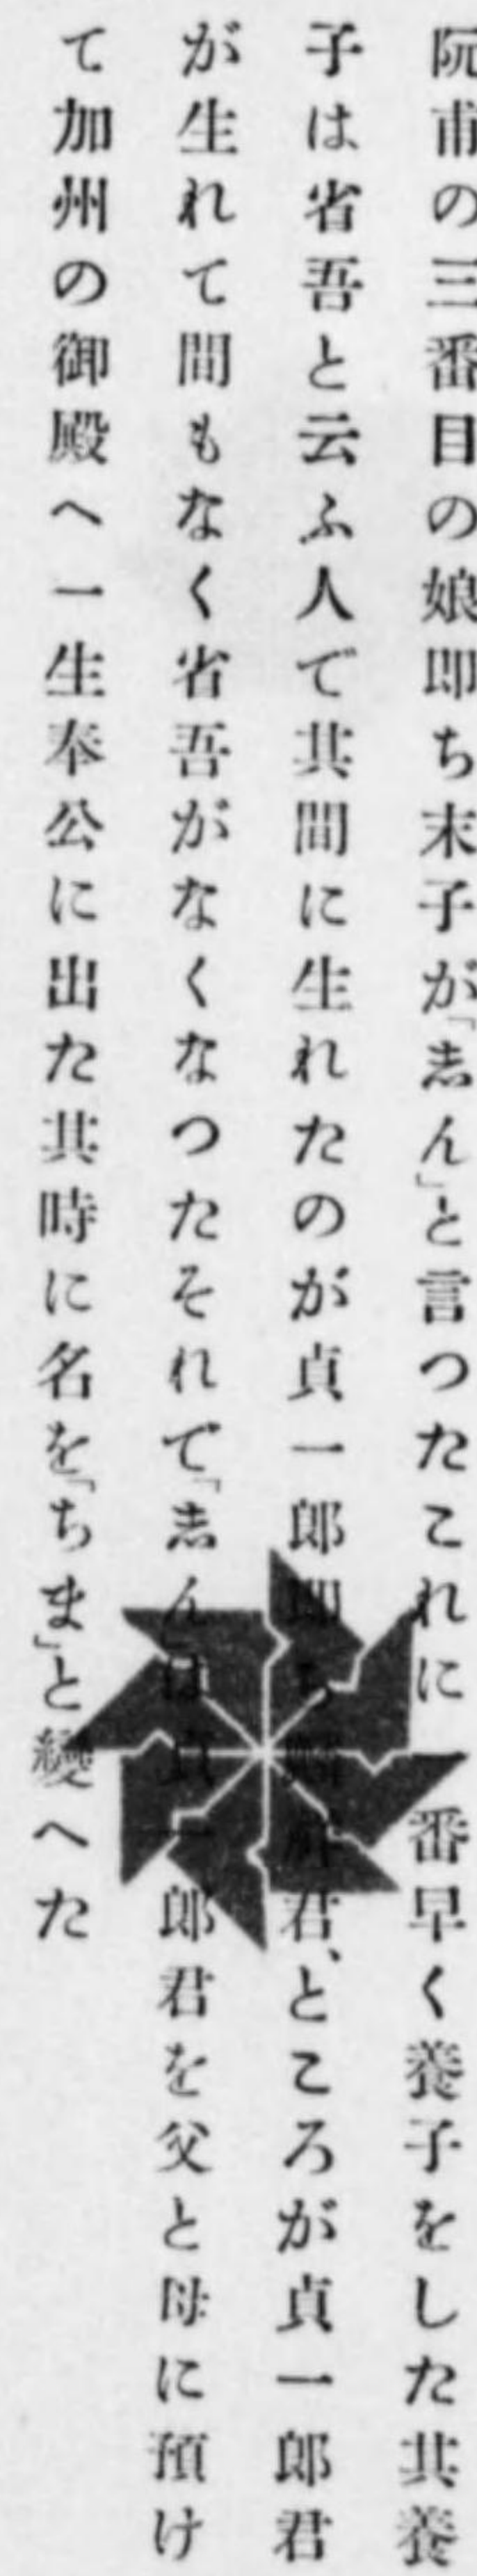 阮甫の三番目の娘即ち末子が「志ん」と言つたこれに一番早く養子をした其養
子は省吾と云ふ人で其間に生れたのが貞一郎即ち 君、ところが貞一郎君
が生れて間もなく省吾がなくなつたそれで「志ん」は貞一郎君を父と母に預け
て加州の御殿へ一生奉公に出た其時に名を「ちま」と變へた